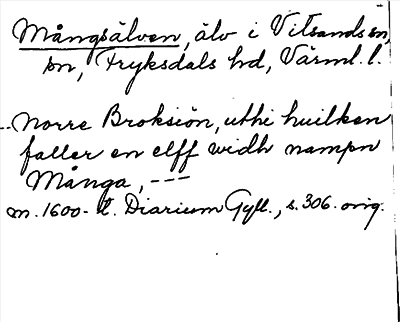 Mångsälven, älv i Vitsands sn,
sn, Fryksdals hd, Värml. l.
--norre Broksiön, uthi huilken
faller en elff widh nampn
Många, ---
m. 1600-t. Diarium Gyll., s. 306. orig.